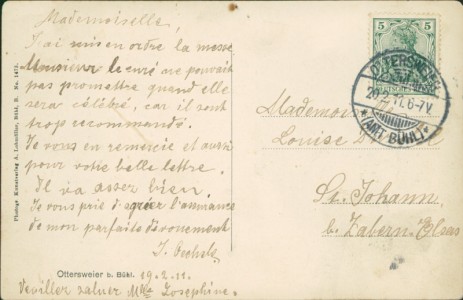 Mademoiselle,
J'ai mis en ordre la messe
Monsieur le curé ne pouvait
pas promettre quand elle
sera célébré, car il sont
trop recommandé.
Je vous en remercie et aussi
pour votre belle lettre.
Il va assez bien.
Je vous prie d'agréer l'assurance
de mon parfaits dévouement
J. Oechsle
Ottersweier b. Bühl. 19.2.11.
Veuillez saluer Mlle Josephine.
5 5
OTTERSWEIER
20.2.11. 6-7V.
*(AMT BÜHL)*
Mademoi
Louise
St. Johann
b. Zabern-Elsass